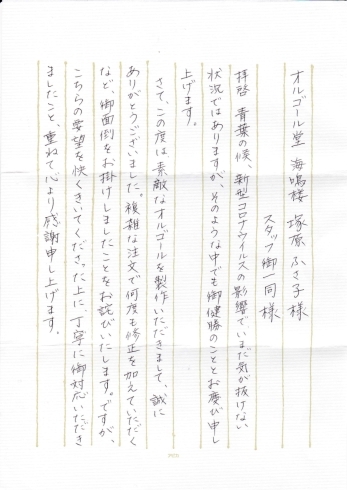 オルゴール堂 海鳴楼 塚原 ふさ子様
スタッフ御一同様
拝啓 青葉の候、新型コロナウイルスの影響でいまだ気が抜けない
状況ではありますが、そのような中でも御健勝のこととお慶び申し
上げます。
さて、この度は、素敵なオルゴールを製作いただきまして、誠に
ありがとうございました。複雑な注文で何度も修正を加えていただく
など、御面倒をお掛けしましたことをお詫びいたします。ですが、
こちらの要望を快くきいてくださった上に、丁寧に御対応いただき
ましたこと、重ねて心より感謝申し上げます。